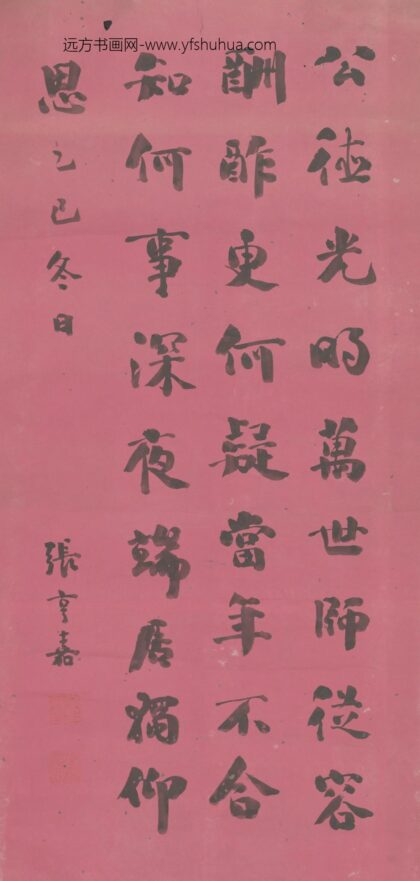 远方书画网-www.yfshuhua.com
公德光明萬世師從容
酬酢更何疑當年不合
知何事深夜端居獨仰
思乙巳冬日
張亨嘉